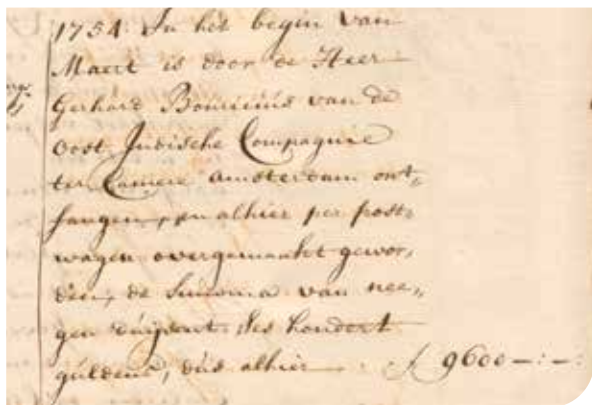 1754: In het begin van
Maert is door de Heer
Gerhard Bouricius van de
Oost Indische Compagnie
ter Camere Amsterdam ont,,
fangen, en alhier per post-
wagen overgemaakt gewor,,
den, de Summa van nee,,
gen duijsent, ses hondert
guldens, dus alhier — . f 9600 —:—: